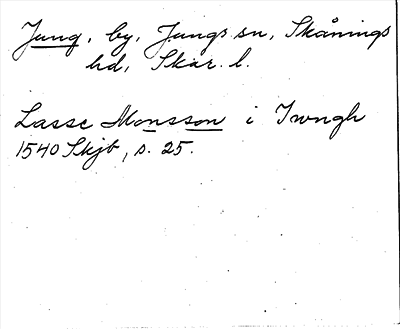 Jung, by, Jungs sn, Skånings
hd, Skar. l.
Lasse Monsson i Iwngh
1540 Skjb, s. 25.